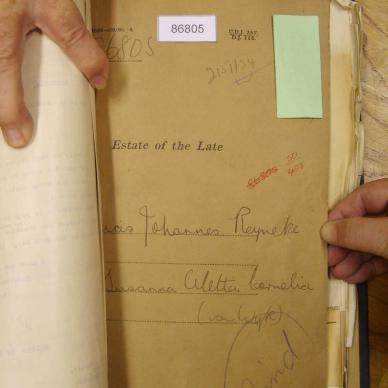 86805
U.D.J. 257.
6805
2151/34
Estate of the Late
86805
407
cis Johannes Reyneke
Susanna Aletta Cornelia
(van Wyk)